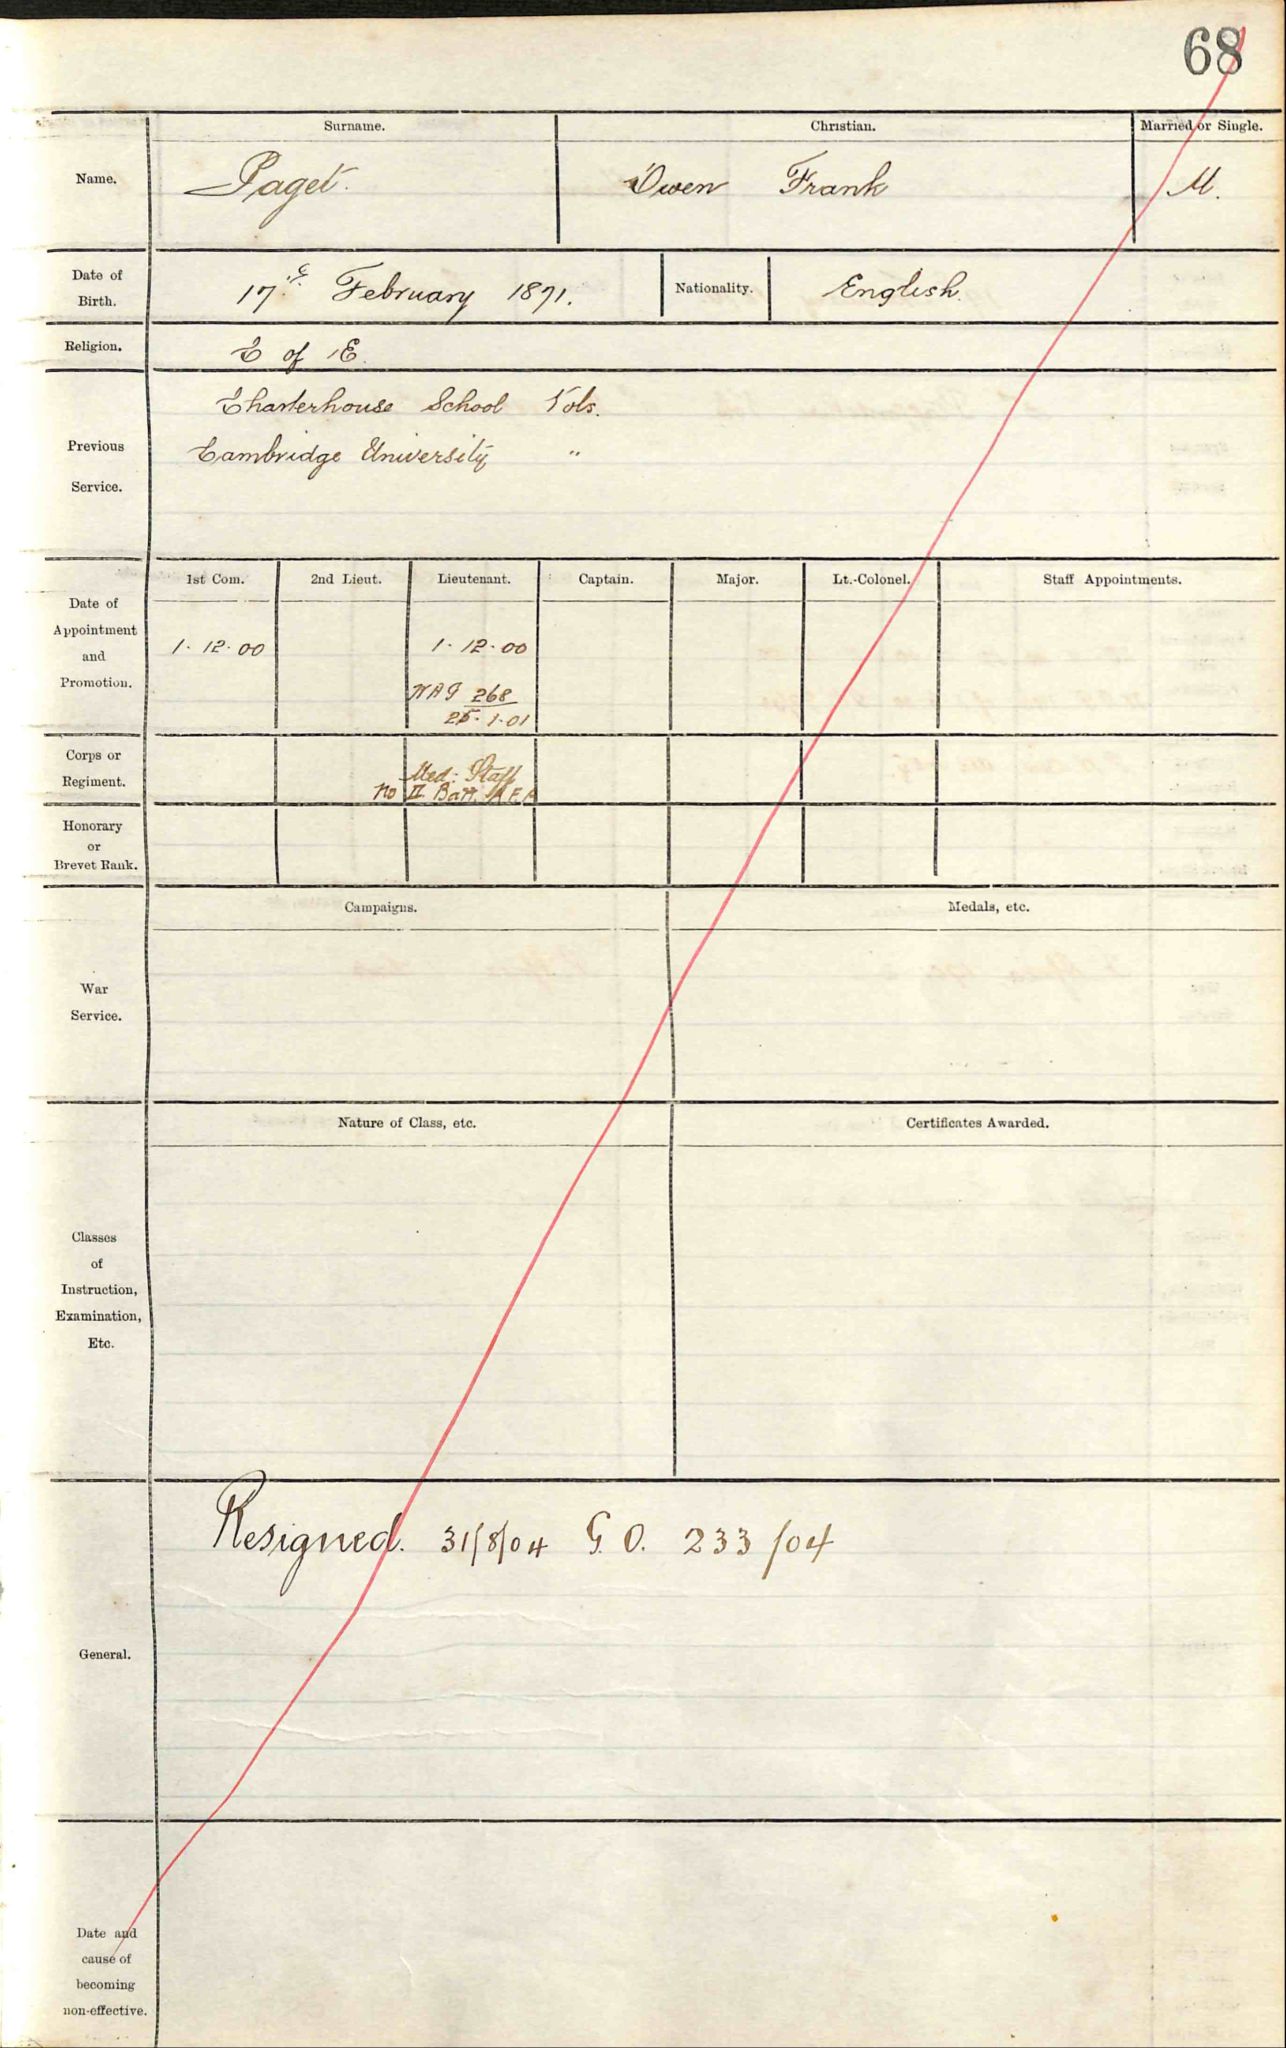 68
Surname. Christian. Married or Single.
Name. Paget. Owen Frank M.
Date of Birth. 17th February 1871. Nationality. English.
Religion. C of E.
Previous Service. Charterhouse School Vols.
Cambridge University "
1st Com. 2nd Lieut. Lieutenant. Captain. Major. Lt.-Colonel. Staff Appointments.
Date of Appointment and Promotion. 1.12.00 1.12.00
WAG 268
25.1.01
Corps or Regiment. Med: Staff
No II Batt. A F A
Honorary or Brevet Rank.
Campaigns. Medals, etc.
War Service.
Nature of Class, etc. Certificates Awarded.
Classes of Instruction, Examination, Etc.
Resigned. 31/8/04 G.O. 233/04
General.
Date and cause of becoming non-effective.